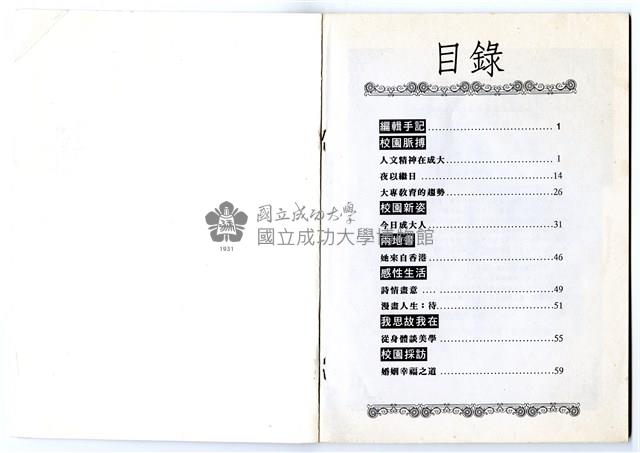 目錄
編輯手記 1
校園脈搏
人文精神在成大 1
夜以繼日 14
大專教育的趨勢 26
校園新姿
今日成大人 31
兩地書
她來自香港 46
感性生活
詩情畫意 49
漫畫人生：待 51
我思故我在
從身體談美學 55
校園採訪
婚姻幸福之道 59
國立成功大學
國立成功大學博物館
1931